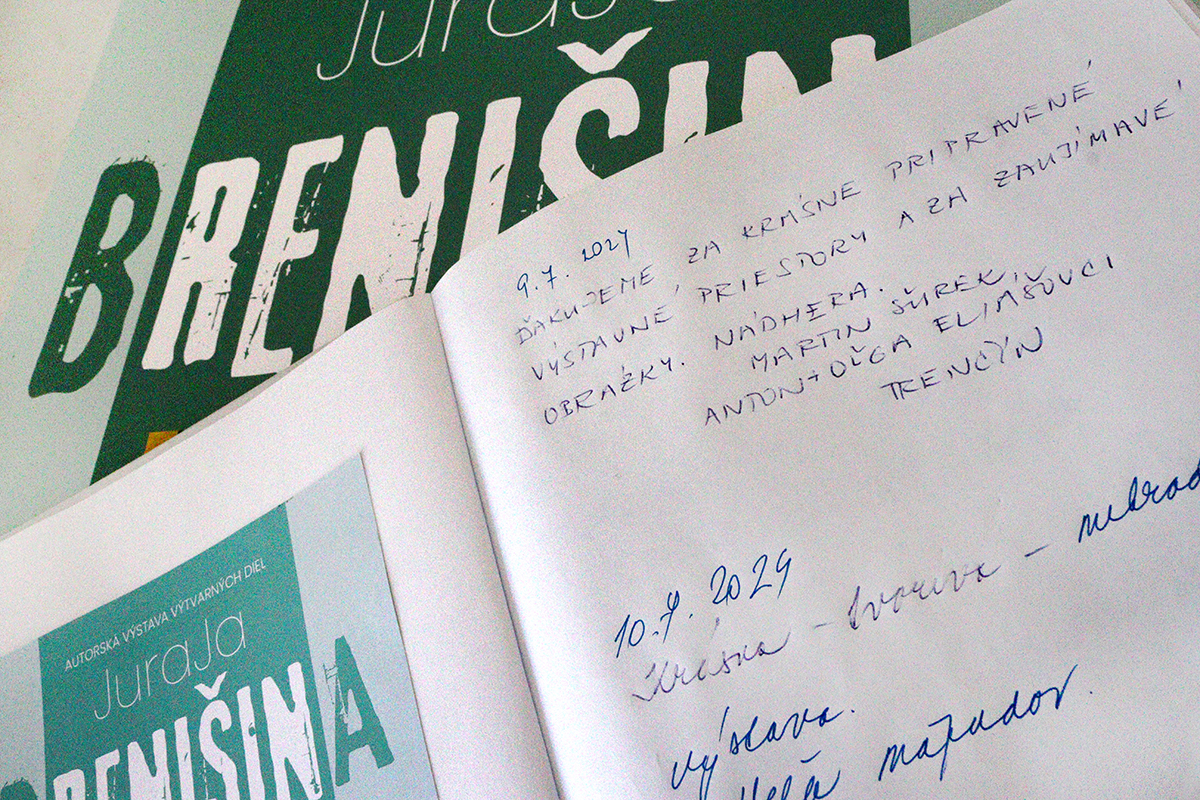 Juraja
BRENIŠIN
9.7. 2024
ĎAKUJEME ZA KRÁSNE PRIPRAVENÉ
VÝSTAVNÉ PRIESTORY A ZA ZAUJÍMAVÉ
OBRÁZKY. NÁDHERA.
MARTIN ŠÚREK,
ANTON + OĽGA
TRENČÍN
10.7. 2024
Krásna - tvorivá -
výstava.
nápadov.
AUTORSKÁ VÝSTAVA VÝTVARNÝCH DIEL
JuraJa
BRENIŠINA